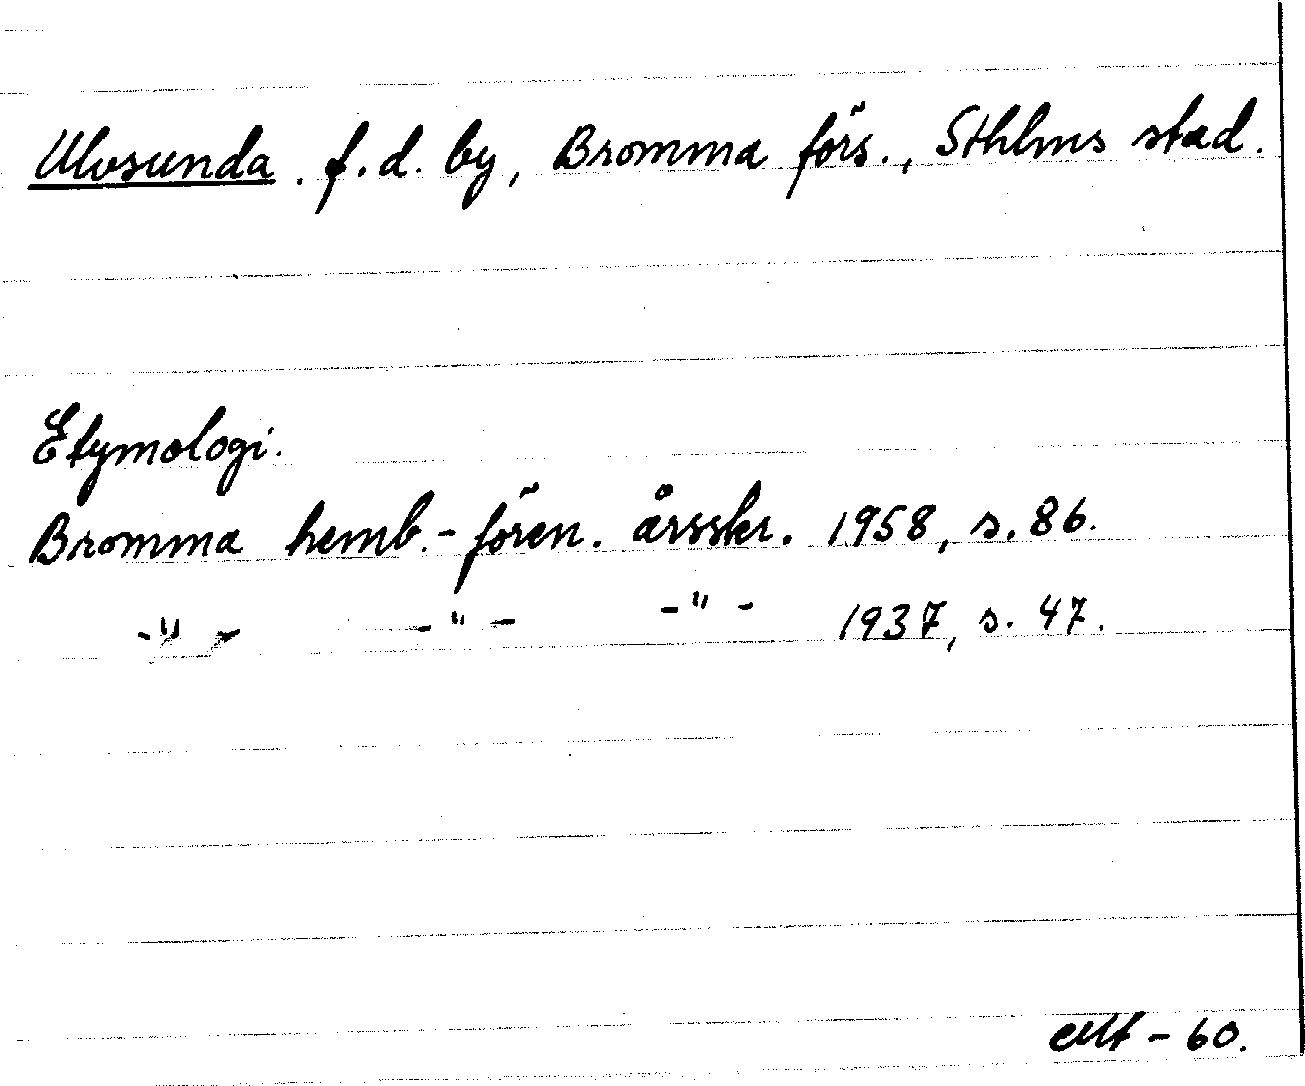 Ulvsunda. f.d. by, Bromma förs., Sthlms stad.
Etymologi.
Bromma hemb.-fören. årsskr. 1958, s. 86.
-"- -"- -"- 1937, s. 47.
- 60.